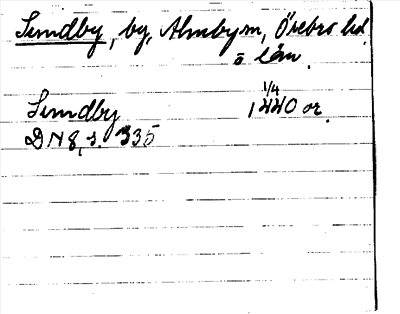 Sundby, by, Almby sn, Örebro hd
o län.
1/4
Sundby 1440 or.
DN 8, s. 335